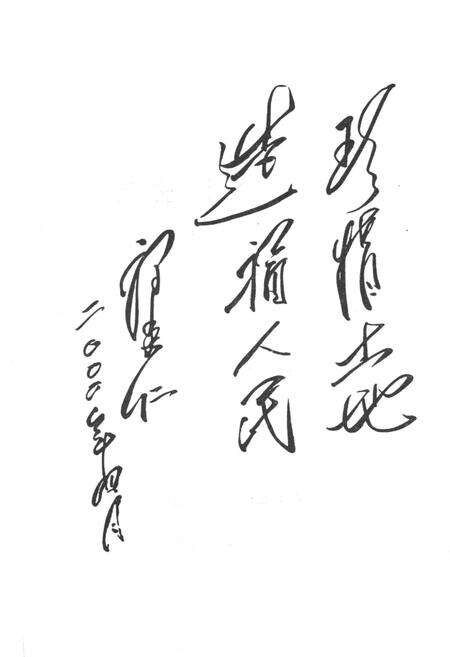 珍惜土地
造福人民
二〇〇〇年四月